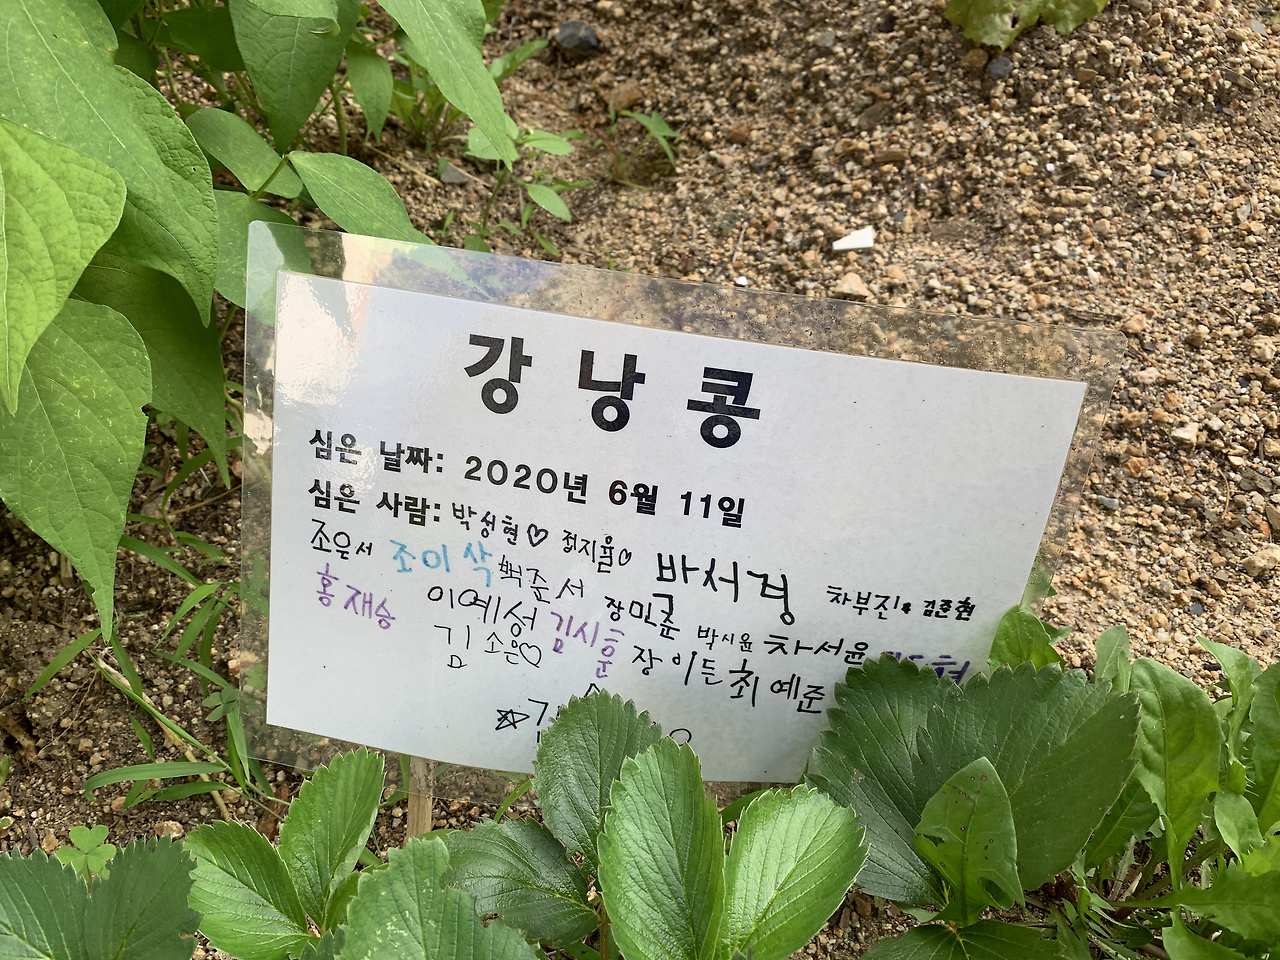 강낭콩
심은 날짜: 2020년 6월 11일
심은 사람: 박성현♡ 정지율♡ 박서경 차부진 김준현
조은서 조이삭 백준서 장민준 박시윤 차서윤
홍재승 이예성 김시훈 장이든 최예준
김소은♡